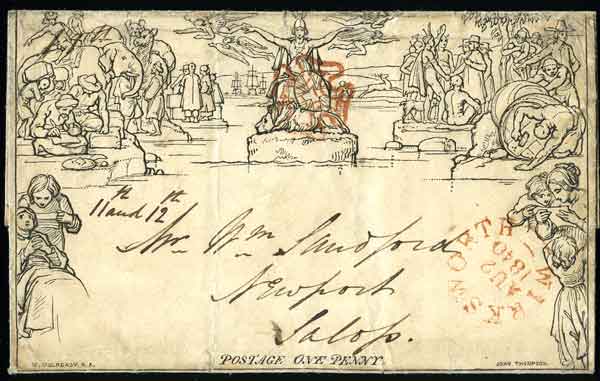 11th and 12th
WIRKSWORTH
AU 2
1840
Mr Wm Sandford
Newport
Salop.
POSTAGE ONE PENNY.
W. MULREADY. R.A.
JOHN THOMPSON.